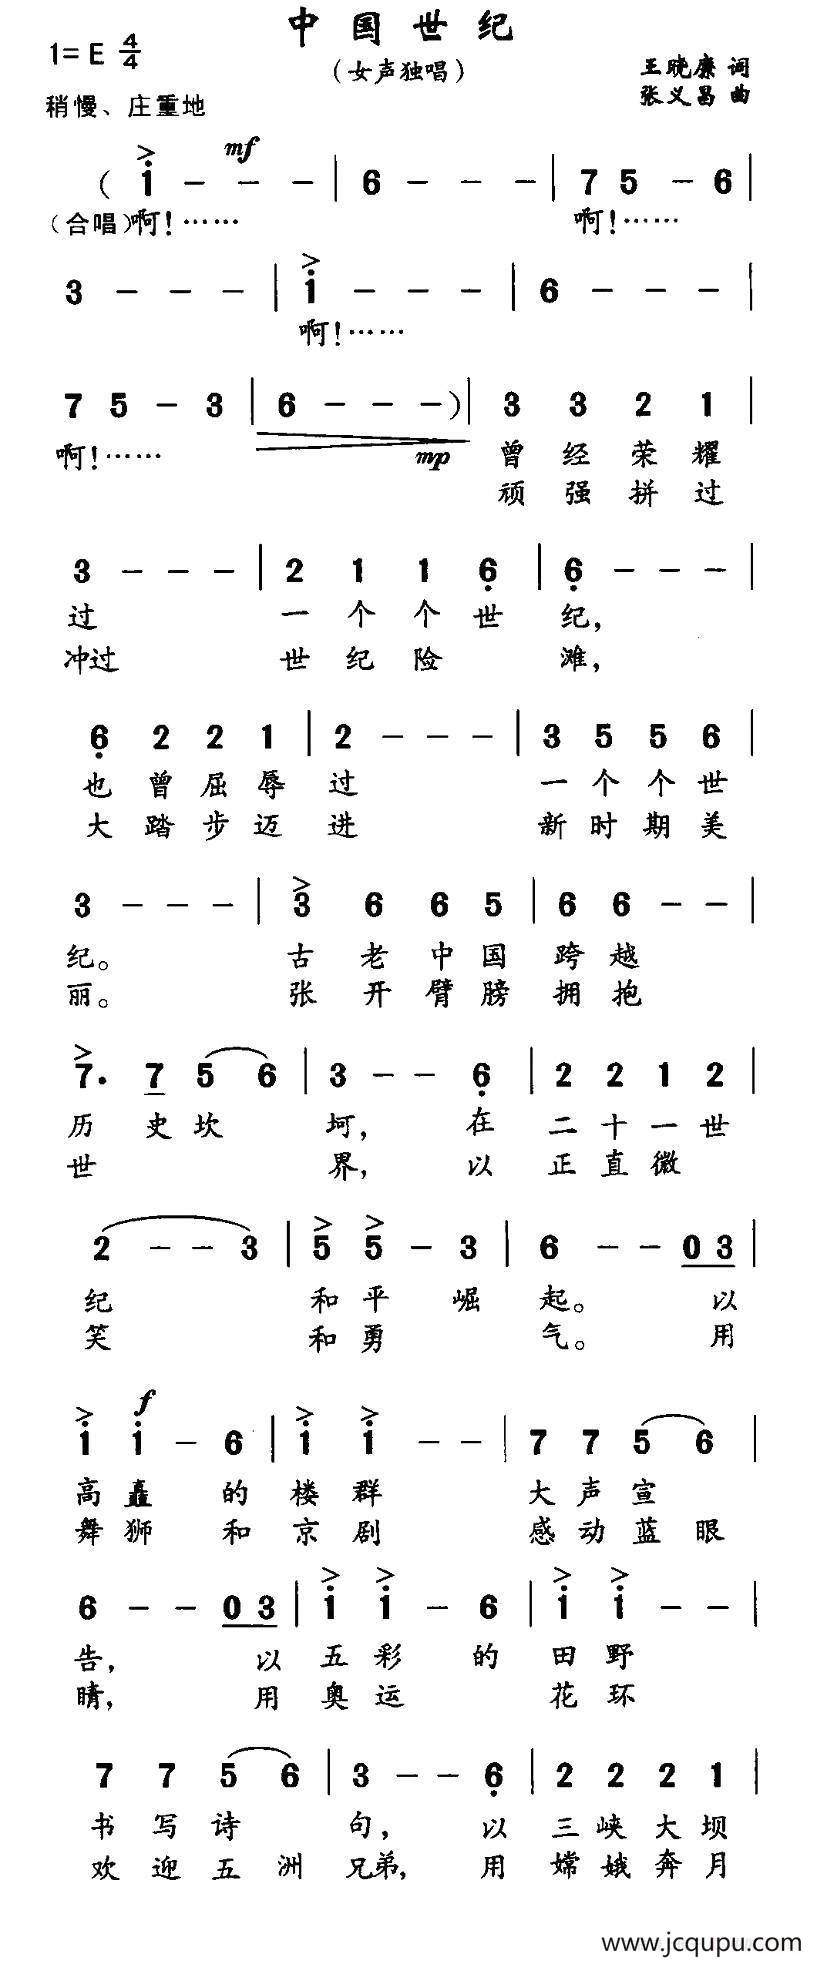 中国世纪
1=E 4/4
(女声独唱)
王晓廉 词
张义昌 曲
稍慢、庄重地
mf
( 1 - - - | 6 - - - | 7 5 - 6 |
(合唱)啊!…… 啊!……
3 - - - | 1 - - - | 6 - - - |
啊!……
7 5 - 3 | 6 - - - ) | 3 3 2 1 |
啊!…… mp 曾经荣耀
顽强拼过
3 - - - | 2 1 1 6 | 6 - - - |
过 一个个世 纪,
冲过 世纪险 滩,
6 2 2 1 | 2 - - - | 3 5 5 6 |
也曾屈辱 过 一个个世
大踏步迈 进 新时期美
3 - - - | 3 6 6 5 | 6 6 - - |
纪。 古老中国 跨越
丽。 张开臂膀 拥抱
7. 7 5 6 | 3 - - 6 | 2 2 1 2 |
历史坎 坷, 在 二十一世
世 界, 以 正直微
2 - - 3 | 5 5 - 3 | 6 - - 0 3 |
纪 和平 崛 起。 以
笑 和勇 气。 用
f
1 1 - 6 | 1 1 - - | 7 7 5 6 |
高矗 的 楼群 大声宣
舞狮 和 京剧 感动蓝眼
6 - - 0 3 | 1 1 - 6 | 1 1 - - |
告, 以 五彩 的 田野
睛, 用 奥运 花环
7 7 5 6 | 3 - - 6 | 2 2 2 1 |
书写诗 句, 以 三峡大坝
欢迎五洲 兄弟, 用 嫦娥奔月
www.jcqupu.com